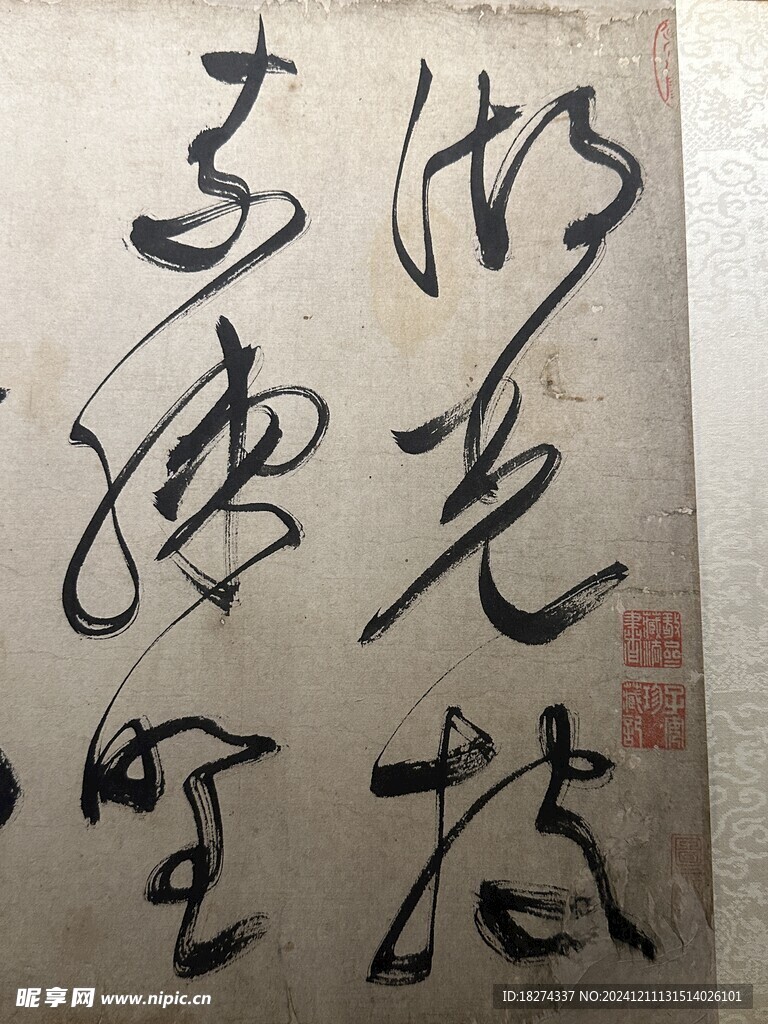 湖光披
素練野
昵享网 www.nipic.cn
ID:18274337 NO:20241211131514026101